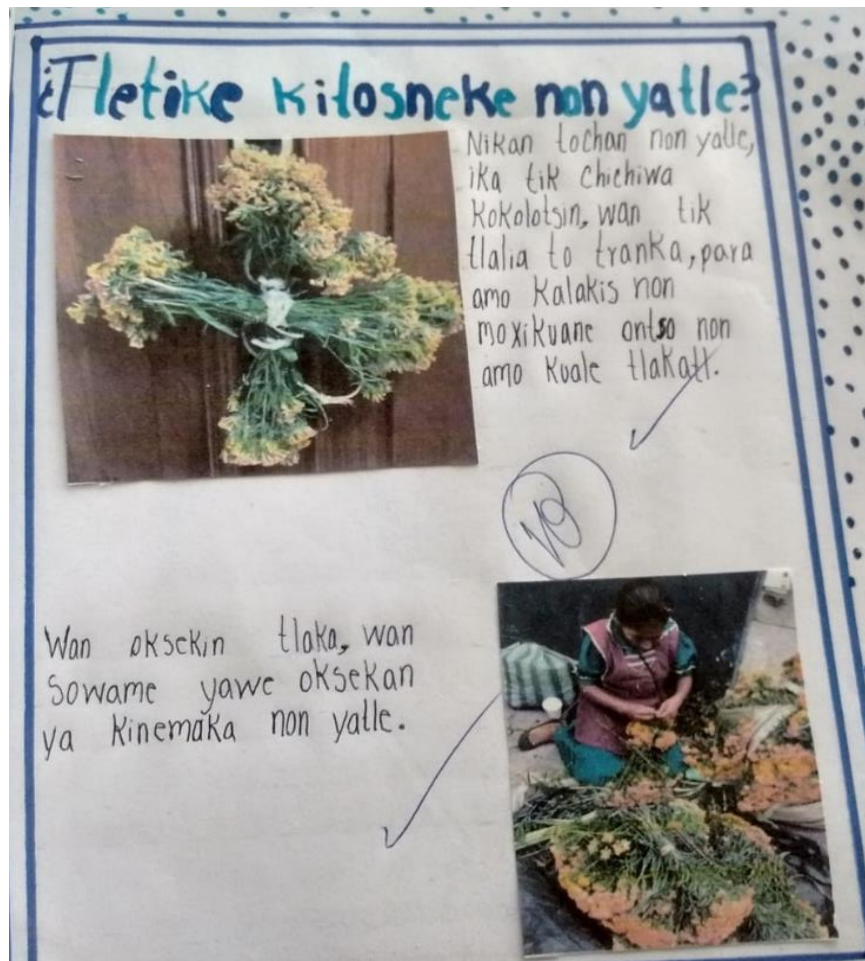 ¿Tletike kitosneke non yatle?
Nikan tochan non yatle,
ika tik chichiwa
kokolotsin, wan tik
tlalia to tranka, para
amo kalakis non
moxikuane ontso non
amo kuale tlakatl.
Wan oksekin tlaka, wan
sowame yawe oksekan
ya kinemaka non yatle.